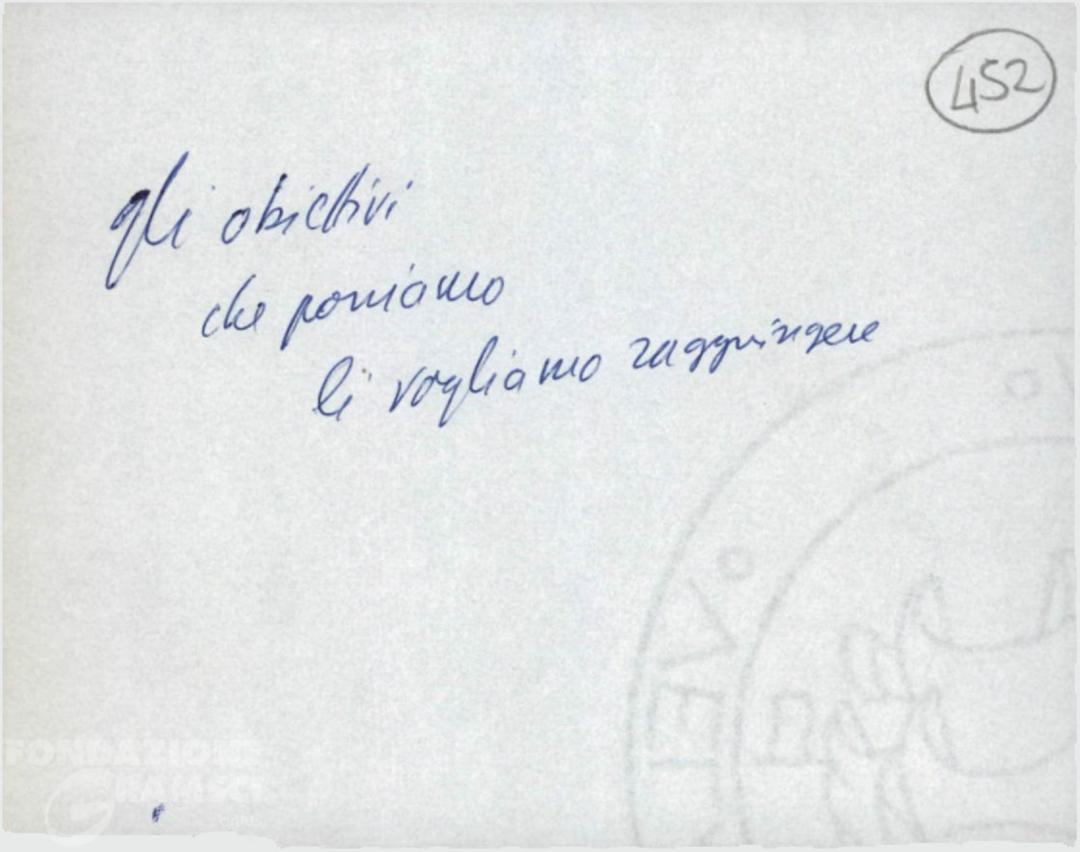 452
gli obiettivi
che poniamo
li vogliamo raggiungere
FONDAZIONE
GRAMSCI